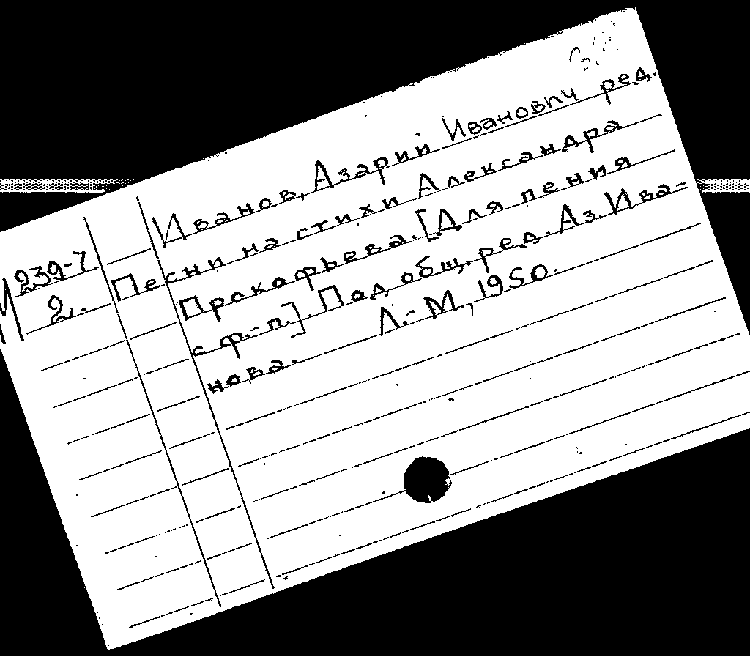 Иванов, Азарий Иванович ред.
М 239-7 Песни на стихи Александра
2. Прокофьева. [Для пения
с ф.-п.]. Под общ. ред. Аз. Ива-
нова. Л.-М., 1950.